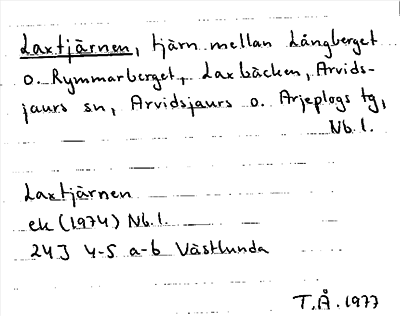 Laxtjärnen, tjärn mellan Långberget
o. Rymmarberget, Laxbäcken, Arvids-
jaurs sn, Arvidsjaurs o. Arjeplogs tg,
Nb. l.
Laxtjärnen
ek (1974) Nb. l.
24J 4-5 a-b Västlunda
T.Å. 1977